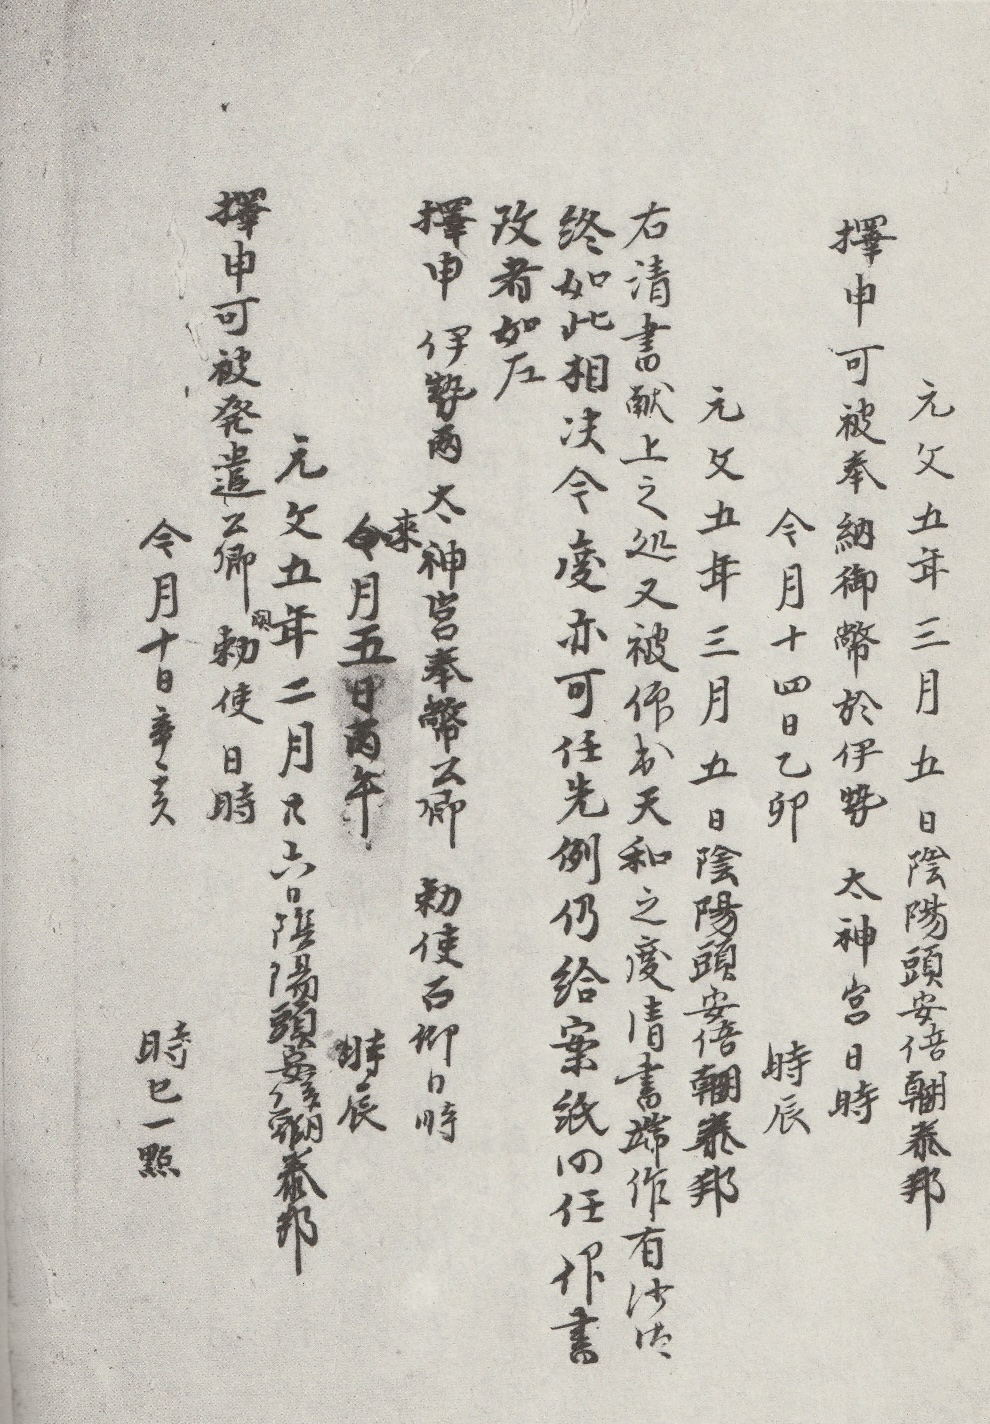 元文五年三月五日陰陽頭安倍朝臣泰邦
擇申可被奉納御幣於伊勢 太神宮日時
今月十四日乙卯 時辰
元文五年三月五日陰陽頭安倍朝臣泰邦
右清書献上之処又被仰出天和之度清書端作有沙汰
終如此相决今度亦可任先例仍給案紙四任仰書
改者如左
擇申 伊勢両太神宮奉幣公卿 勅使日時
来月五日丙午 時辰
元文五年二月 六日陰陽頭安倍朝臣泰邦
擇申可被発遣公卿 勅使日時
今月十日辛亥 時巳一點